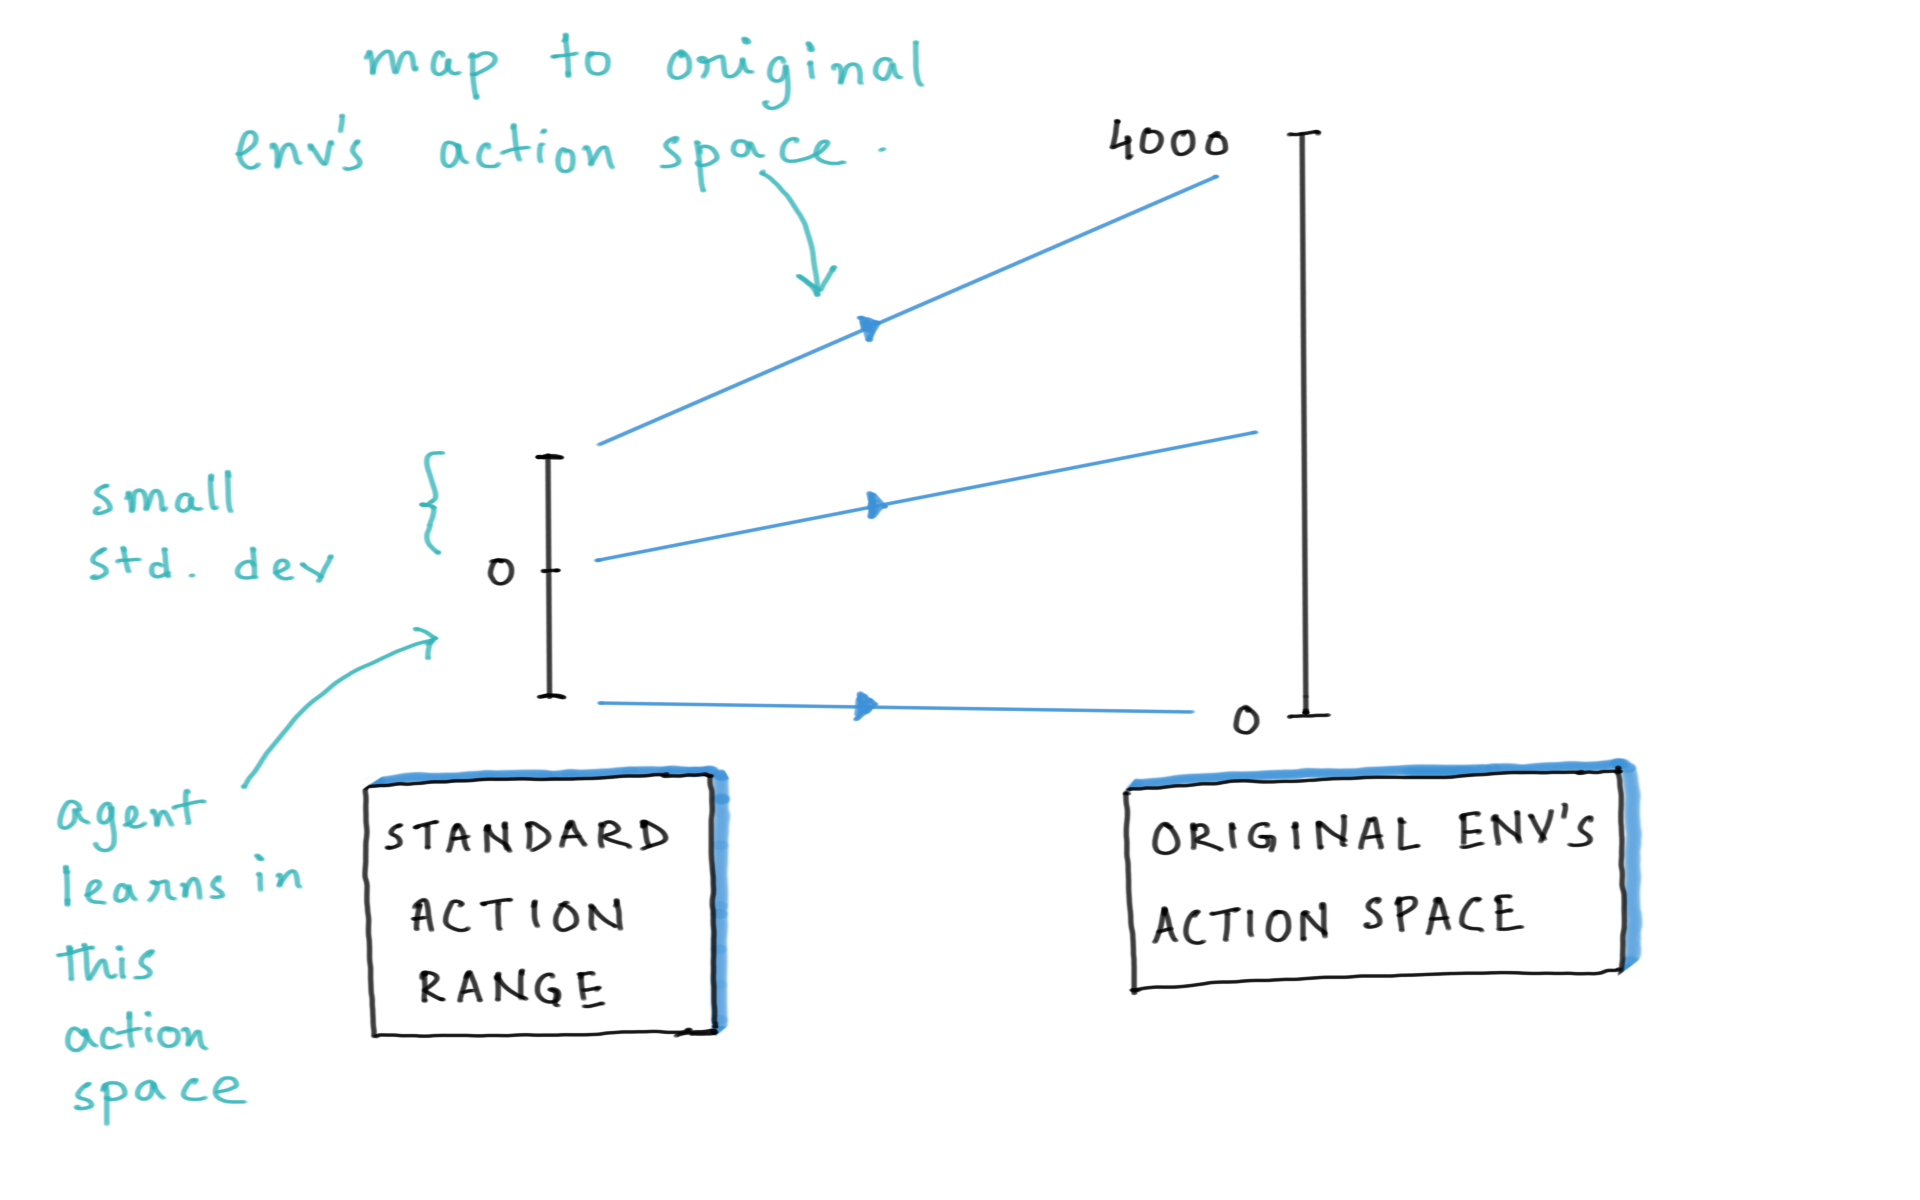 map to original
env's action space.
4000
small
std. dev
0
0
agent
learns in
this
action
space
STANDARD
ACTION
RANGE
ORIGINAL ENV'S
ACTION SPACE